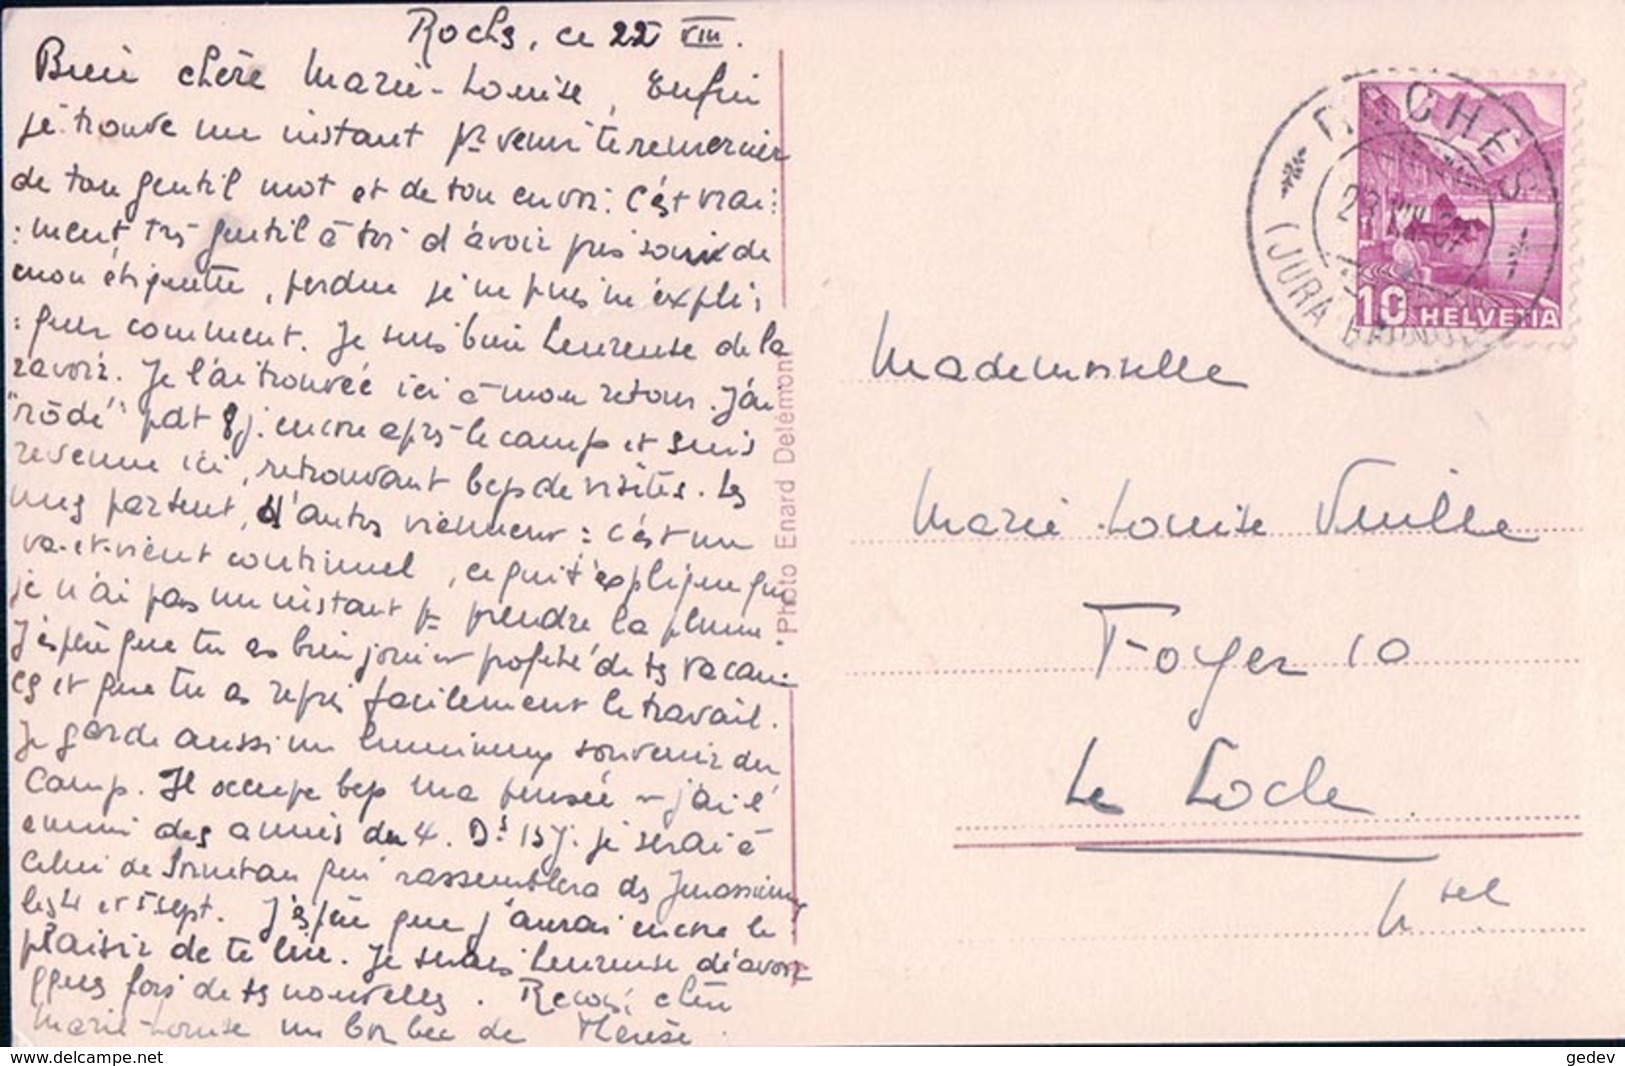 Roches, ce 22 VIII.
Bien chère Marie-Louise, Enfin
je trouve un instant pr venir te remercier
de ton gentil mot et de ton envoi. C'est vrai:
:ment très gentil à toi d'avoir pris soin de
mon étiquette, perdue je ne puis m'expli:
:quer comment. Je suis bien heureuse de la
ravoir. Je l'ai trouvée ici à mon retour. J'ai
"rôdé" pdt 8 j. encore après le camp et suis
revenue ici, retrouvant bcp de visites. Les
uns partent, d'autres viennent: c'est un
va-et-vient continuel, ce qui t'explique que
je n'ai pas un instant pr prendre la plume.
J'espère que tu as bien joui et profité de tes vacan:
ces et que tu as repris facilement le travail.
Je garde aussi un lumineux souvenir du
camp. Il occupe bcp ma pensée
des amies du 4. Ds 15 j. je serai à
celui de Sornetan qui rassemblera des Jurassiens
les 4 et 5 sept. J'espère que j'aurai encore le
plaisir de te lire. Je serais heureuse d'avoir
qques fois de tes nouvelles. Reçois, chère
Marie-Louise un bon bec de Thérèse.
Photo Enard Delémont
ROCHES
(JURA BERNOIS)
23 VIII 37
10 HELVETIA
Mademoiselle
Marie-Louise Vuille
Foyer 10
Le Locle
Ntel
delcampe.net
gedev